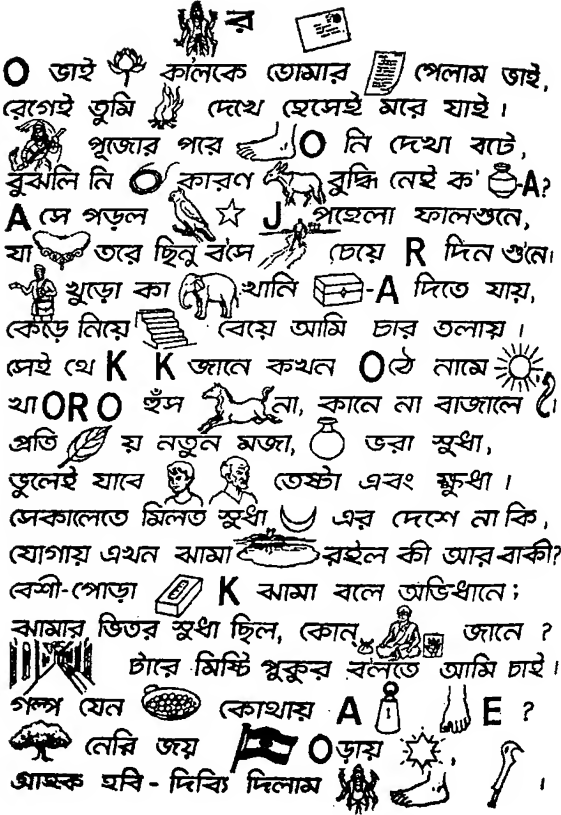 র
O ভাই কালকে তোমার পেলাম ভাই,
রেগেই তুমি দেখে হেসেই মরে যাই।
পূজোর পরে O নি দেখা বটে,
বুঝলি নি O কারণ বুদ্ধি নেই ক' -A?
A সে পড়ল J পহেলা ফালগুনে,
যা তরে ছিনু ব'সে চেয়ে R দিন গুনে।
খুড়ো কা খানি -A দিতে যায়,
কেড়ে নিয়ে বেয়ে আমি চার তলায়।
সেই থে K K জানে কখন O ঠে নামে
খা ORO হুঁস না, কানে না বাজালে।
প্রতি য় নতুন মজা, ভরা সুধা,
ভুলেই যাবে তেষ্টা এবং ক্ষুধা।
সেকালেতে মিলত সুধা এর দেশে নাকি,
যোগায় এখন ঝামা রইল কী আর বাকী?
বেশী-পোড়া K ঝামা বলে অভিধানে;
ঝামার ভিতর সুধা ছিল, কোন্ জানে?
টারে মিষ্টি পুকুর বলতে আমি চাই।
গল্প যেন কোথায় A E ?
নেরি জয় O ড়ায়,
হবি - দিব্যি দিলাম ।